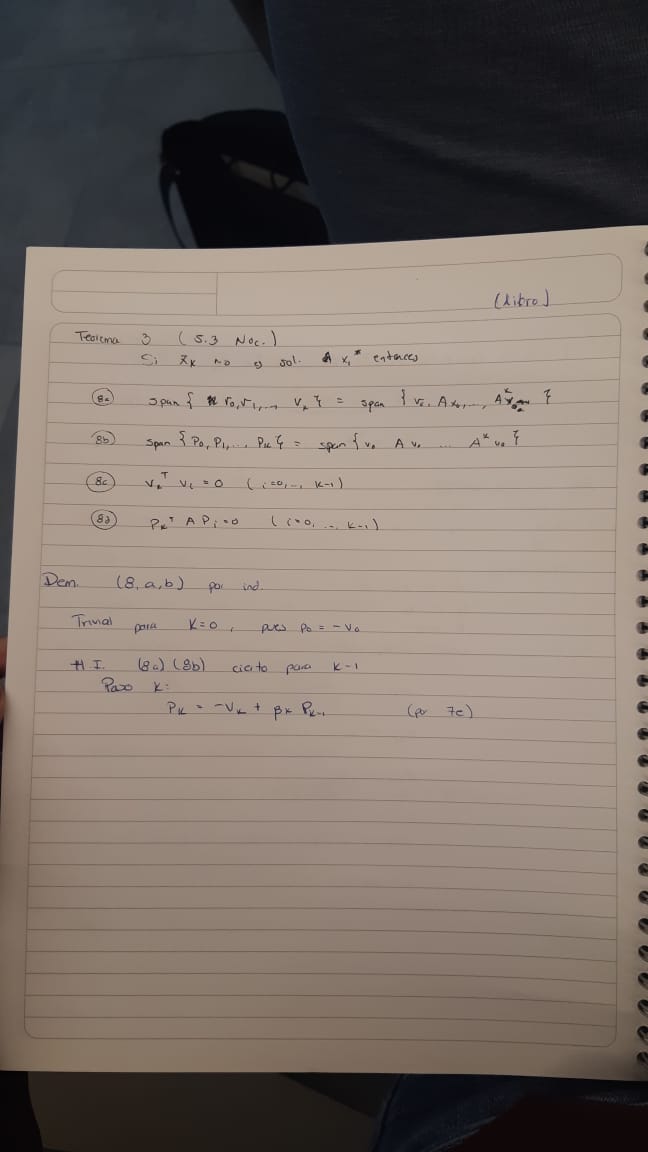 (Libro)
Teorema 3 (5.3 Noc.)
Si x_k no es sol. x,* entonces
(8a) span { r0, r1, ..., r_k } = span { r0, A r0, ..., A^k }
(8b) span { P0, P1, ... P_k } = span { r0 A r0 ... A^k r0 }
(8c) r_k^T r_i = 0 (i=0, .., k-1)
(8d) P_k^T A P_i = 0 (i=0, ... k-1)
Dem. (8, a, b) por ind.
Trivial para K=0, pues P0 = -r0
H I. (8a) (8b) cierto para k-1
Paso K:
P_k = -r_k + β_k P_k-1 (por 7e)